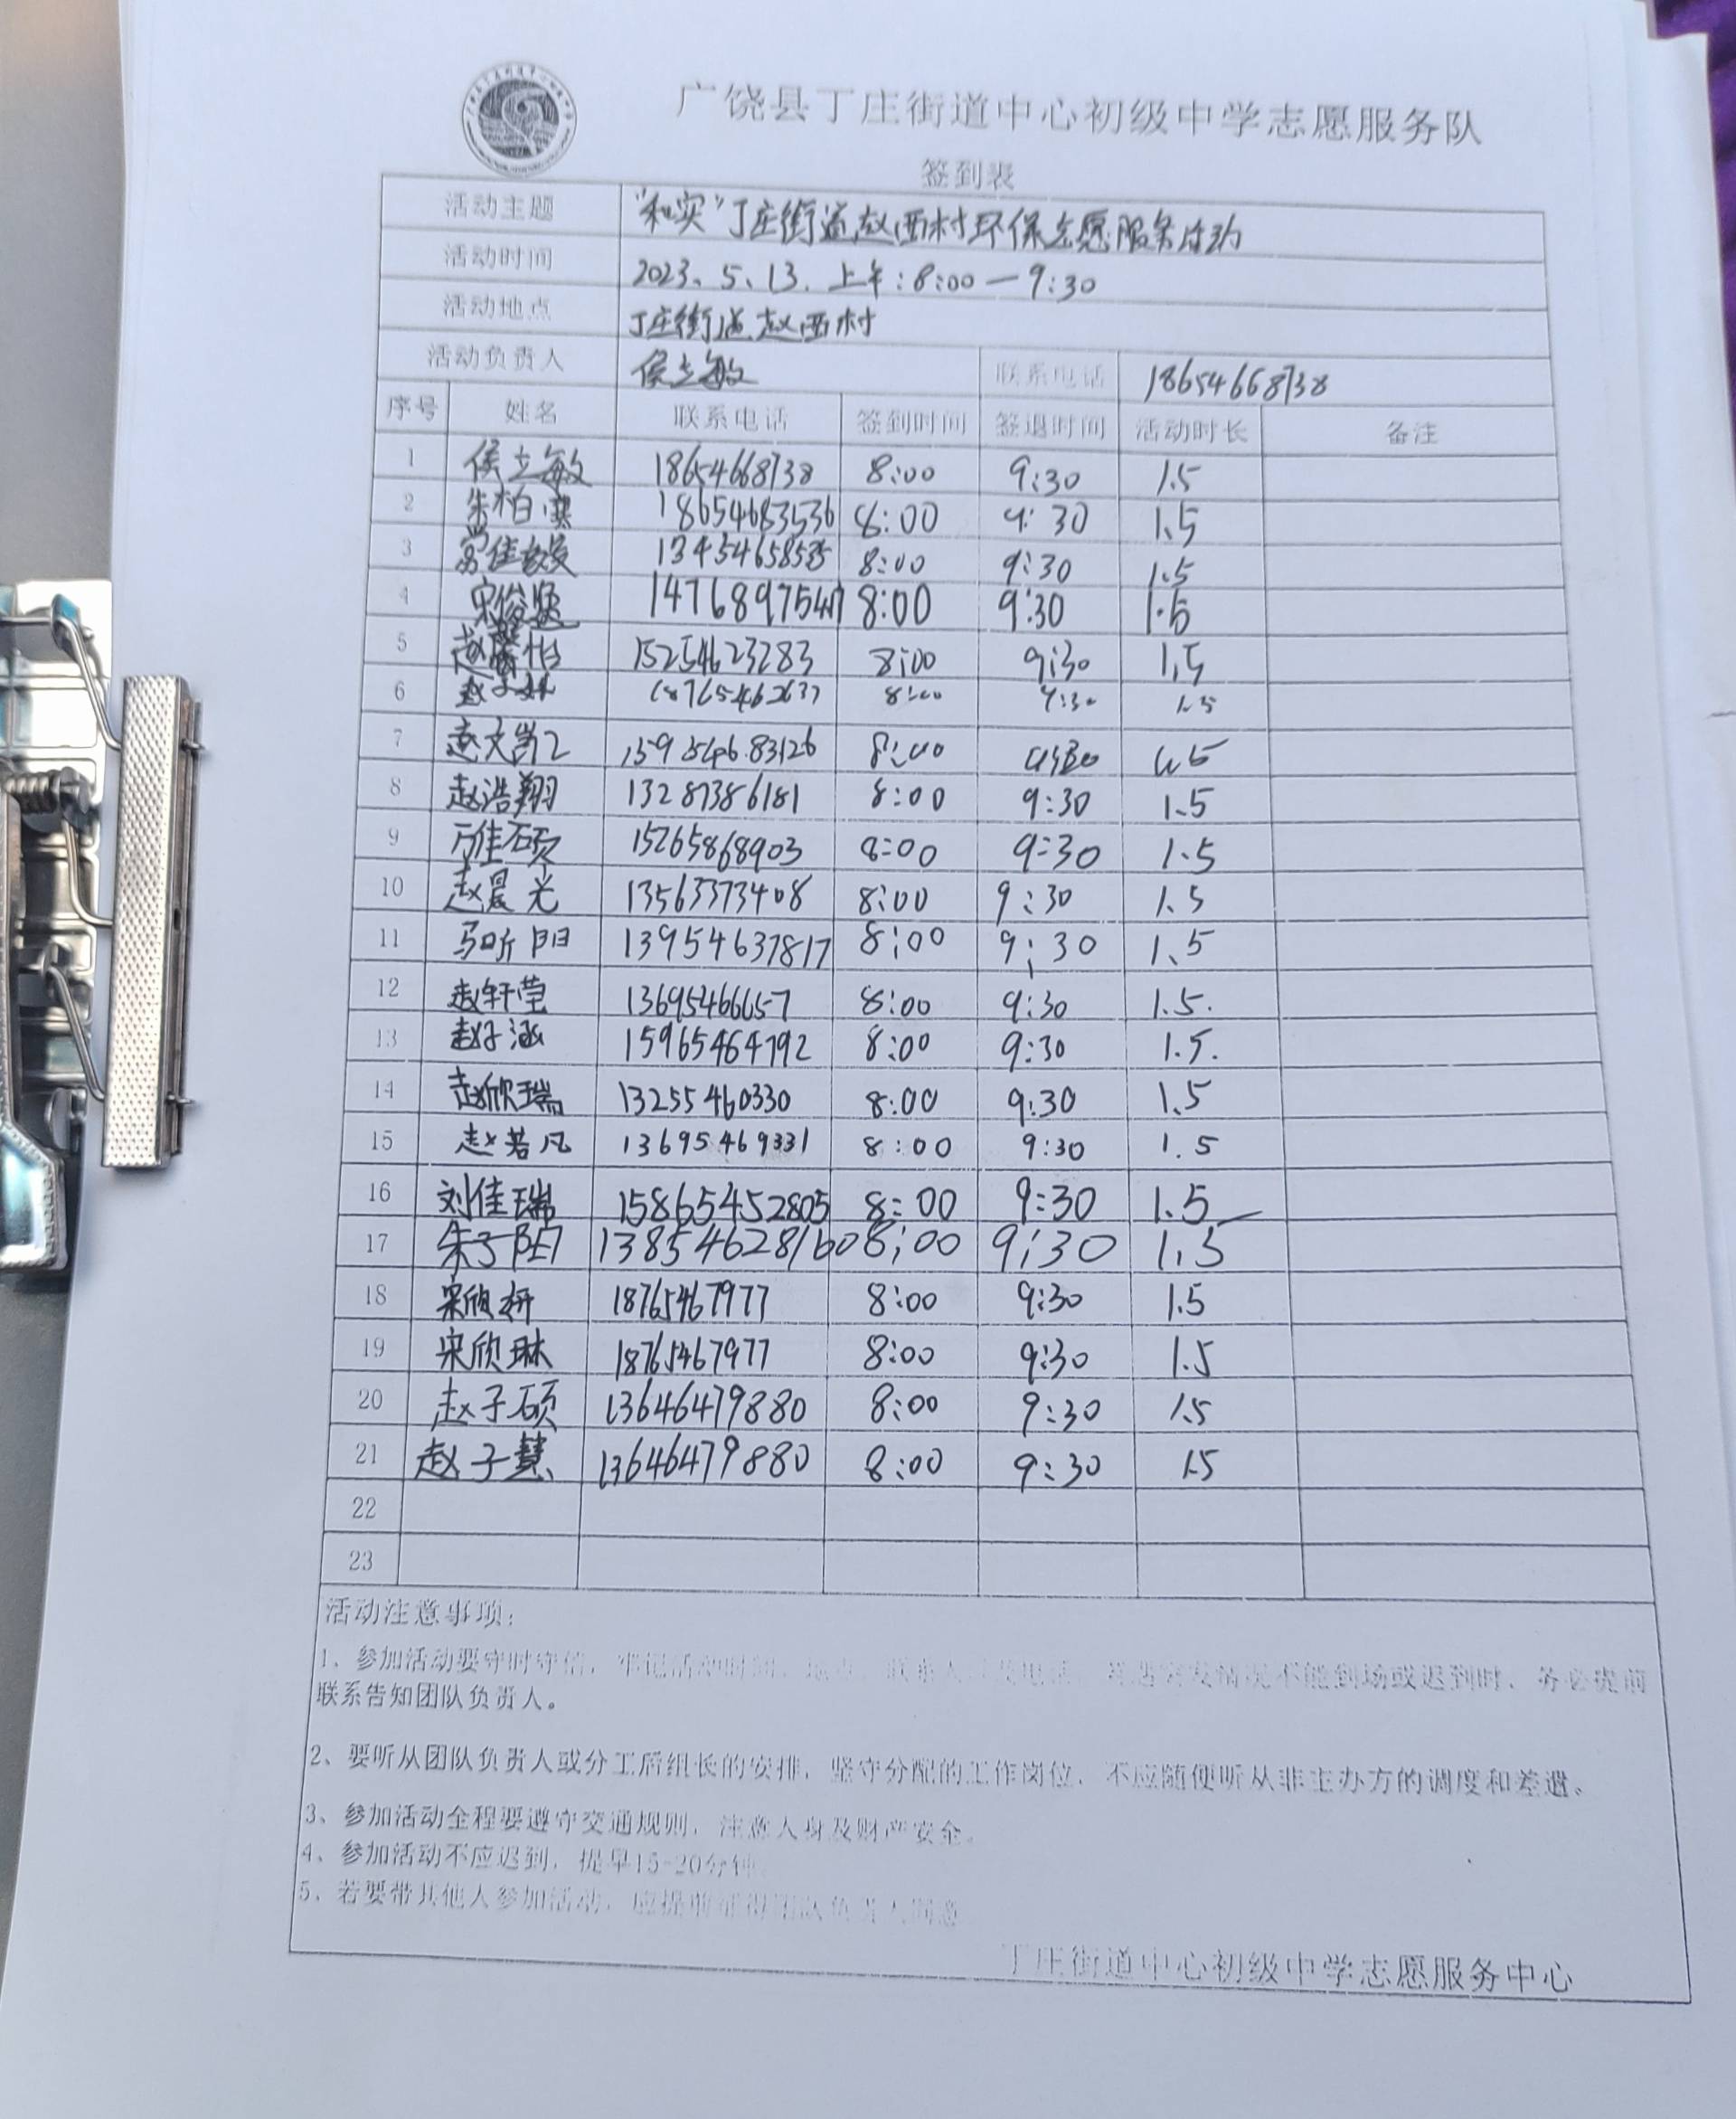 广饶县丁庄街道中心初级中学志愿服务队
签到表
活动主题 “和实”丁庄街道赵西村环保志愿服务活动
活动时间 2023、5、13. 上午:8:00—9:30
活动地点 丁庄街道赵西村
活动负责人 侯立敏 联系电话 18654668738
序号 姓名 联系电话 签到时间 签退时间 活动时长 备注
1 侯立敏 18654668738 8:00 9:30 1.5
2 朱柏 18654683536 8:00 9:30 1.5
3 8:00 9:30 1.5
4 宋俊贤 8:00 9:30 1.5
5 赵馨怡 15254623283 8:00 9:30 1.5
6 赵子 8:00 9:30 1.5
7 赵文 159254683126 8:00 1.5
8 赵浩翔 13287386181 8:00 9:30 1.5
9 佳硕 15265868903 8:00 9:30 1.5
10 赵晨光 13563373408 8:00 9:30 1.5
11 马昕阳 13954637817 8:00 9:30 1.5
12 赵轩莹 13695466657 8:00 9:30 1.5.
13 赵子涵 15965464792 8:00 9:30 1.5.
14 赵欣瑞 13255460330 8:00 9:30 1.5
15 赵若凡 13695469331 8:00 9:30 1.5
16 刘佳瑞 15865452805 8:00 9:30 1.5
17 朱子阳 13854628160 8:00 9:30 1.5
18 宋欣妍 18765467977 8:00 9:30 1.5
19 宋欣琳 18765467977 8:00 9:30 1.5
20 赵子硕 13646479880 8:00 9:30 1.5
21 赵子慧 13646479880 8:00 9:30 1.5
22
23
活动注意事项:
1、参加活动要守时守信，牢记活动时间、地点、联系人及电话，情况不能到场或迟到时，务必提前
联系告知团队负责人。
2、要听从团队负责人或分工后组长的安排，坚守分配的工作岗位，不应随便听从非主办方的调度和差遣。
3、参加活动全程要遵守交通规则，注意人身及财产安全。
4、参加活动不应迟到，提早15-20分钟。
5、若要带其他人参加活动，应提前征得团队负责人同意
丁庄街道中心初级中学志愿服务中心